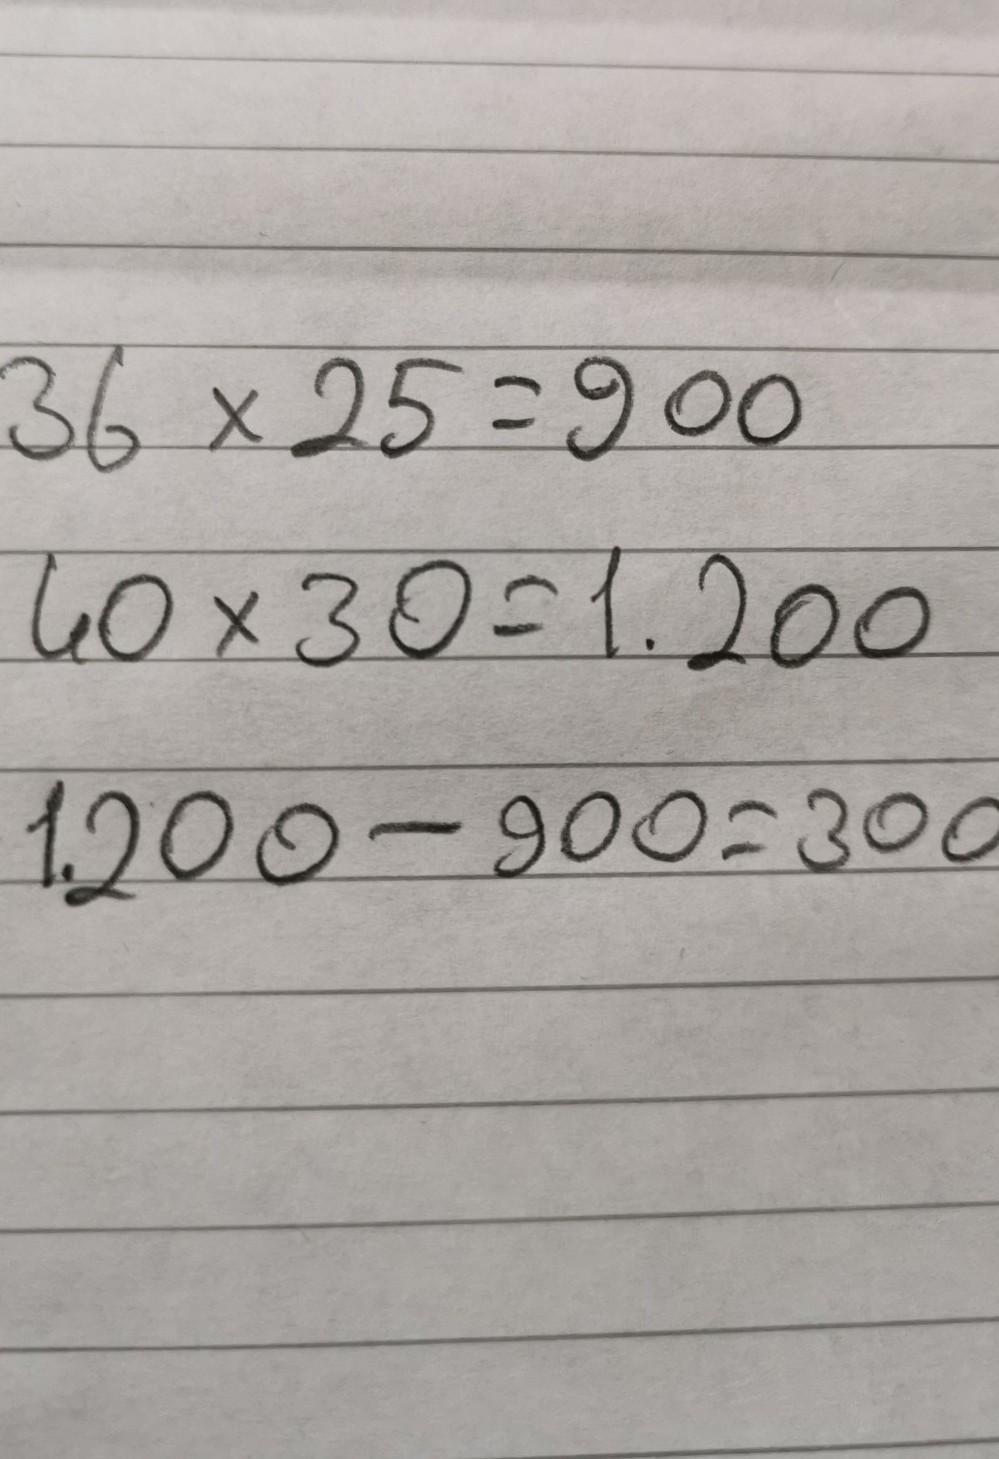 36 x 25 = 900
40 x 30 = 1.200
1.200 - 900 = 300